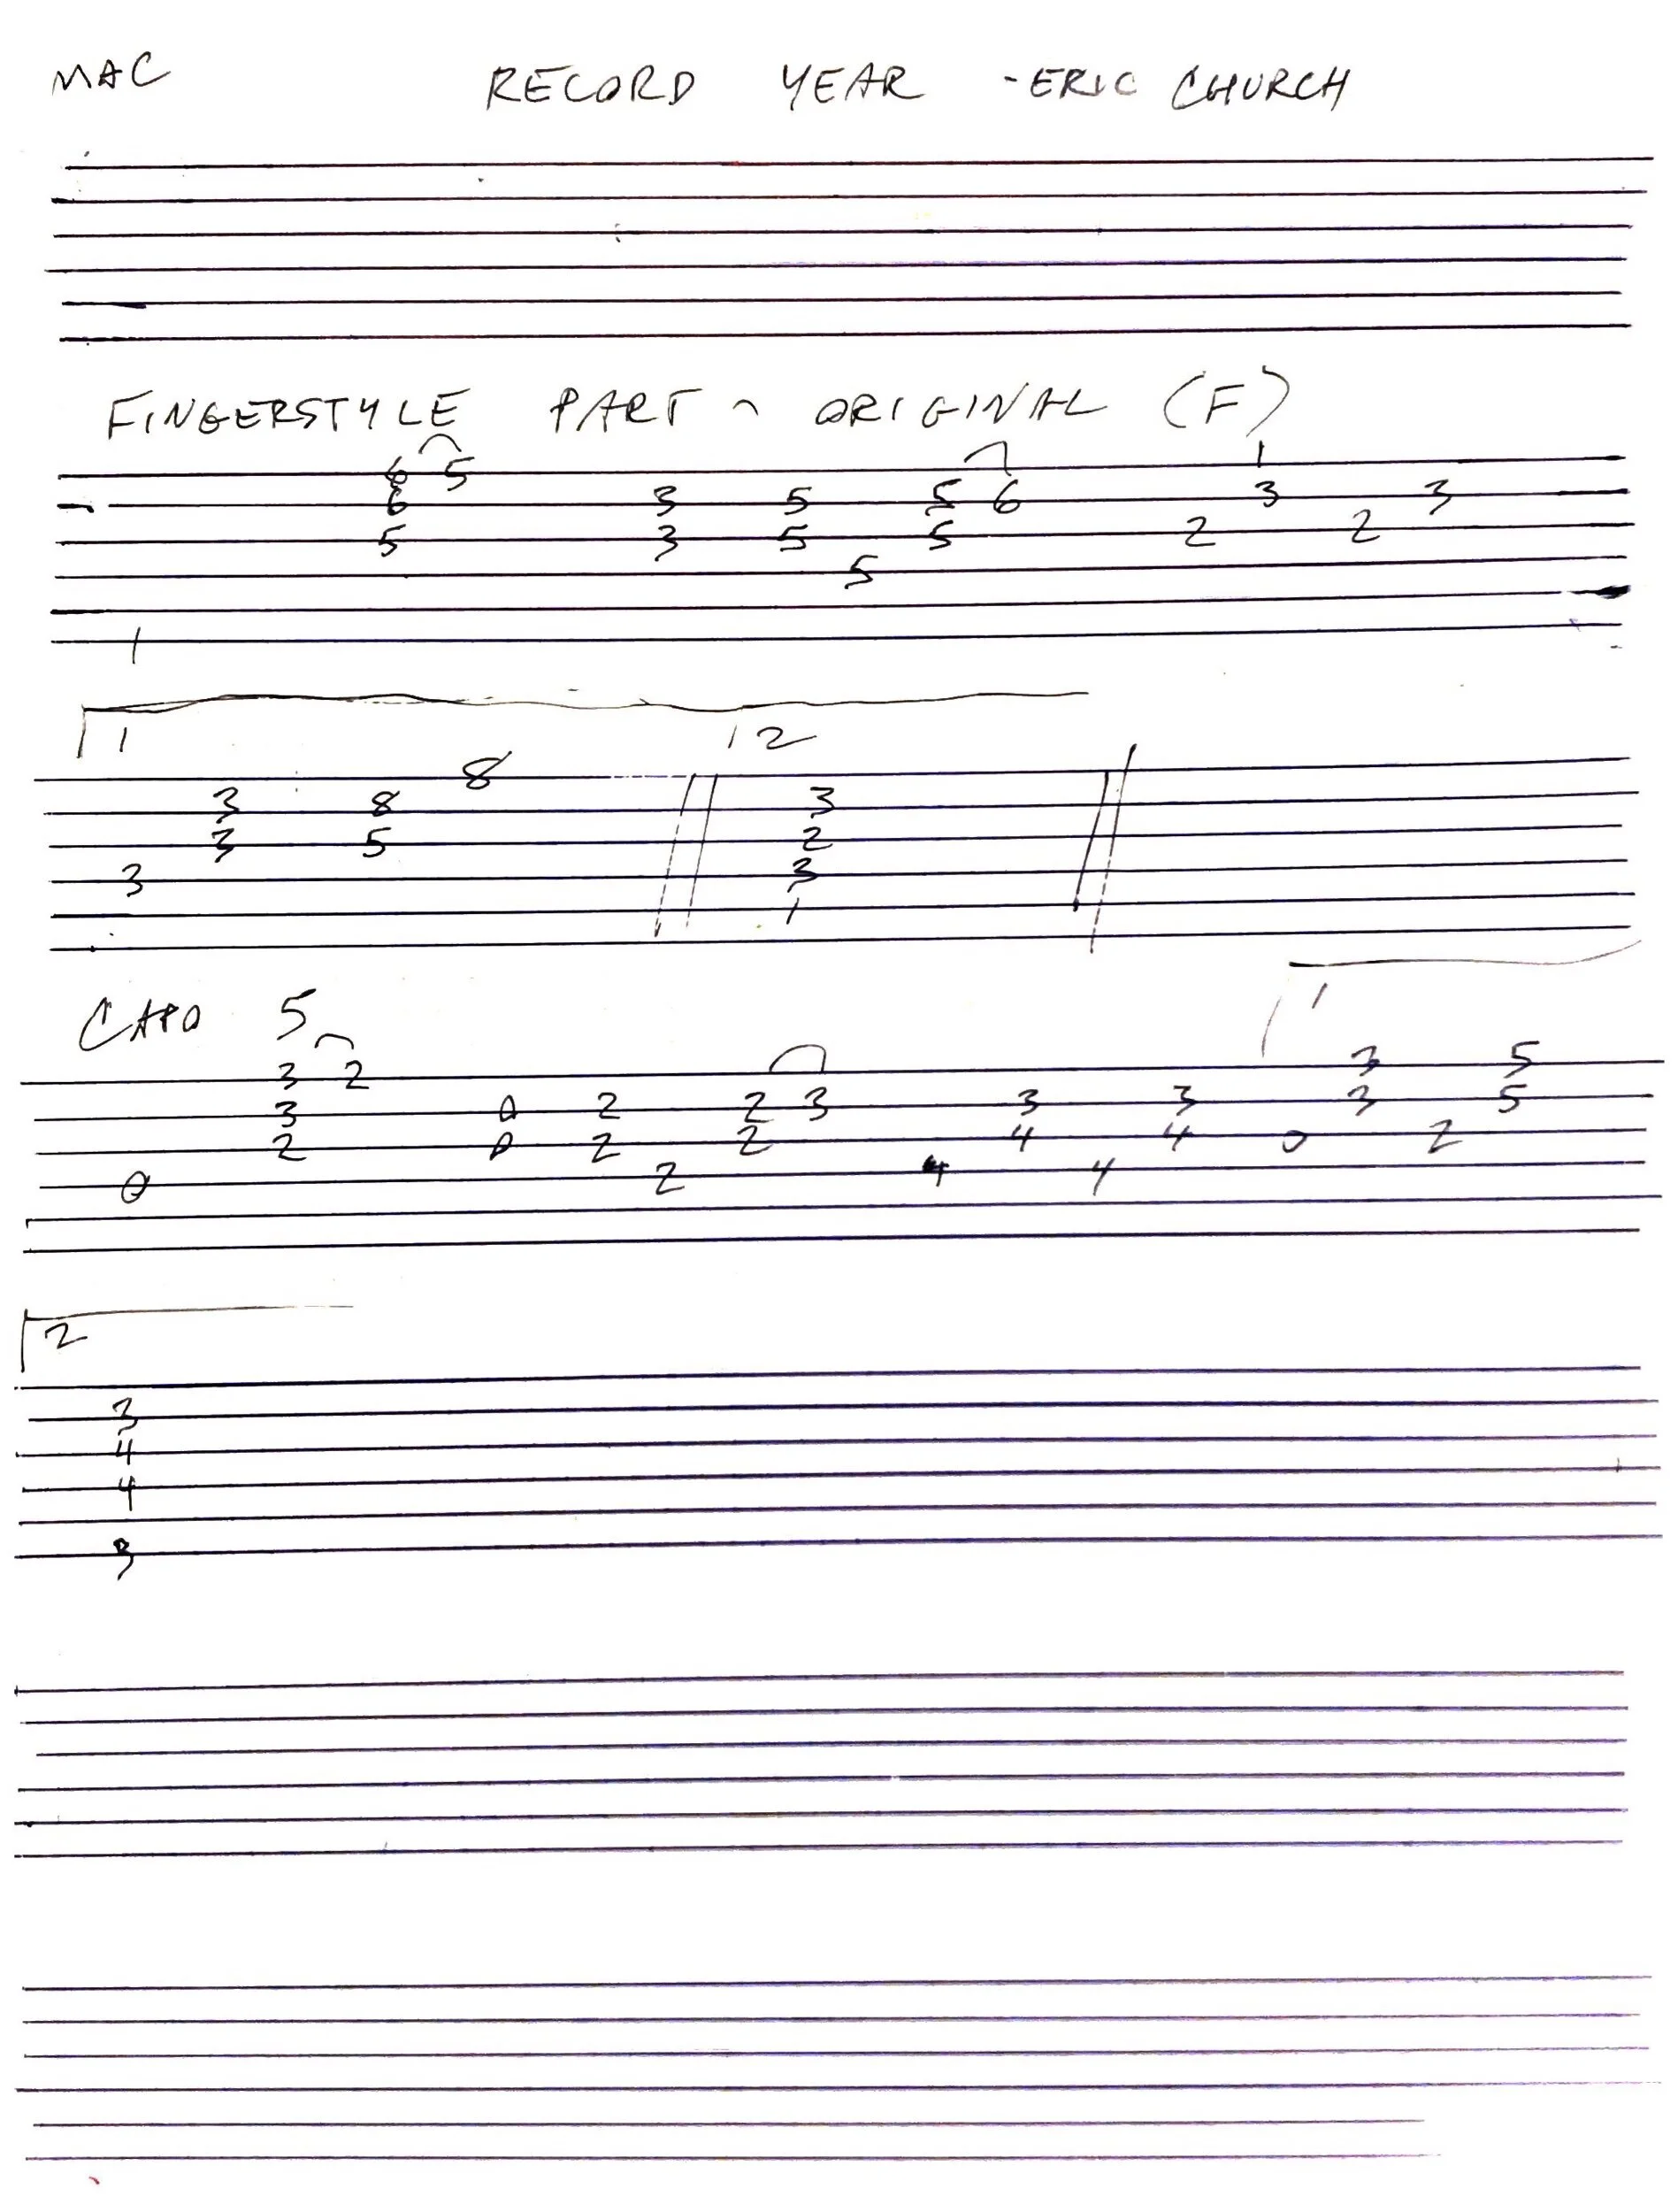 MAC RECORD YEAR - ERIC CHURCH
FINGERSTYLE PART ~ ORIGINAL (F)
6 5 1
6 3 5 5 6 3 3
5 3 5 5 2 2
5
1
1 2
8
3 8 3
3 5 2
3 3
1
CAPO 5
1
3 2 3 5
3 0 2 2 3 3 3 3 5
2 0 2 2 4 4 0 2
0 2 4 4
2
3
4
4
3